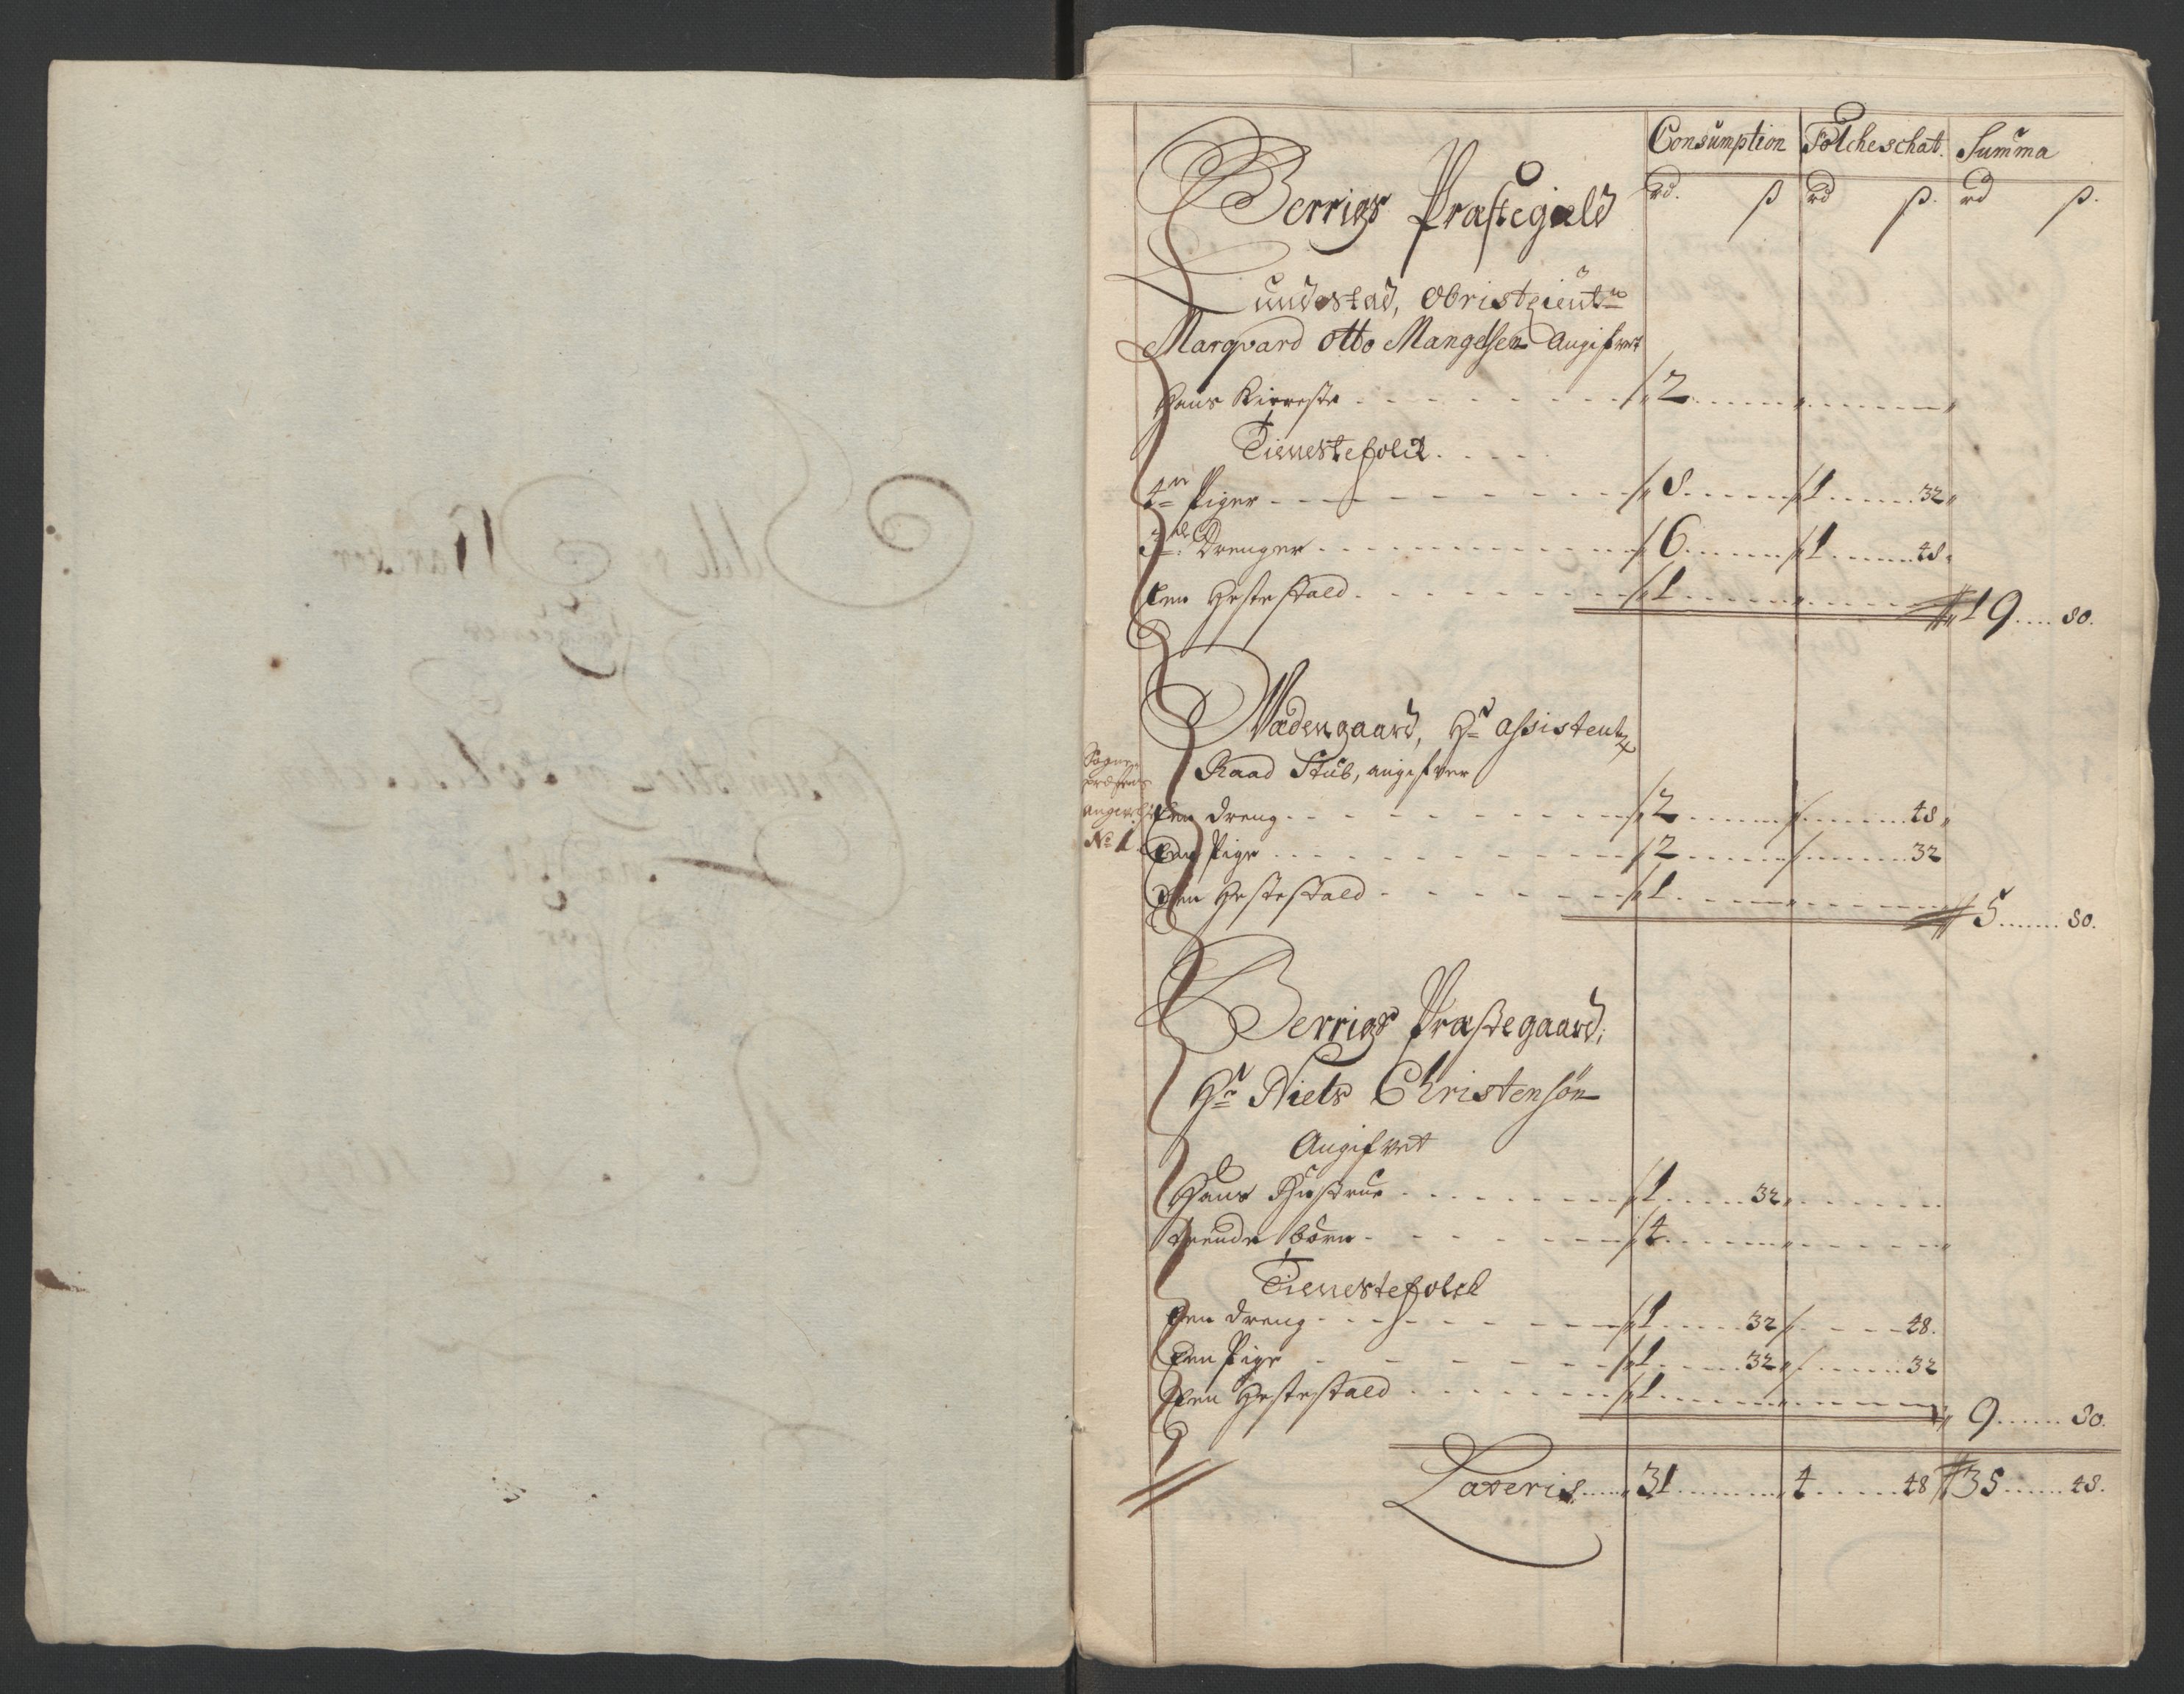 Consumption Folcheschat. Summa
rd. ß rd ß. rd ß.
Berrigs Præstegield
Lundestad, Obristleutn
Marqvard Otto Mangelsen Angifvet
Hans Kiereste 2
Tienestefolck
4re Piger 8 1 32
3de Drenger 6 1 48
Een Hestestald 1 19 80.
Wadengaard, Hr Assistentz
Raad Stub, angifver
Sogne
Præstens
No 1.
Een dreng 2 48
Een Pige 2 32
Een Hestestald 1 5 80.
Berrigs Præstegaard,
Hr Niels Christensøn
Angifvet
Hans Hustrue 1 32
trende Børn 4
Tienestefolck
Een dreng 1 32 48.
Een Pige 1 32 32
Een Hestestald 1 9 80.
Lateris 31 4 48 35 48.